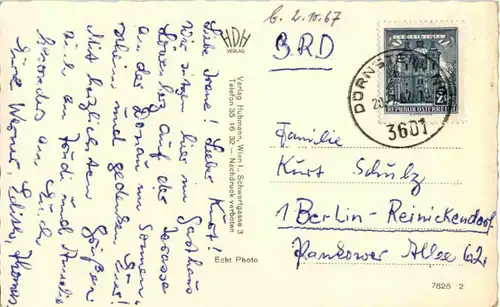 b. 2.10.67
BRD
HDH
VERLAG
Liebe Irene! Lieber Kurt!
Wir sitzen hier im Gasthaus
auf der Terasse
an der Donau im Sonnen-
schein und gedenken Euer!
Mit herzlichen Grüßen
auch an
besonders an Euch
Eure Werner Thomas
Verlag Hubmann, Wien I., Schwertgasse 3
Telefon 35 16 32 — Nachdruck verboten
Echt Photo
DÜRNSTEIN
3601
REPUBLIK ÖSTERREICH
Familie
Kurt Schulz
1 Berlin-Reinickendorf
Pankower Allee
7825 2